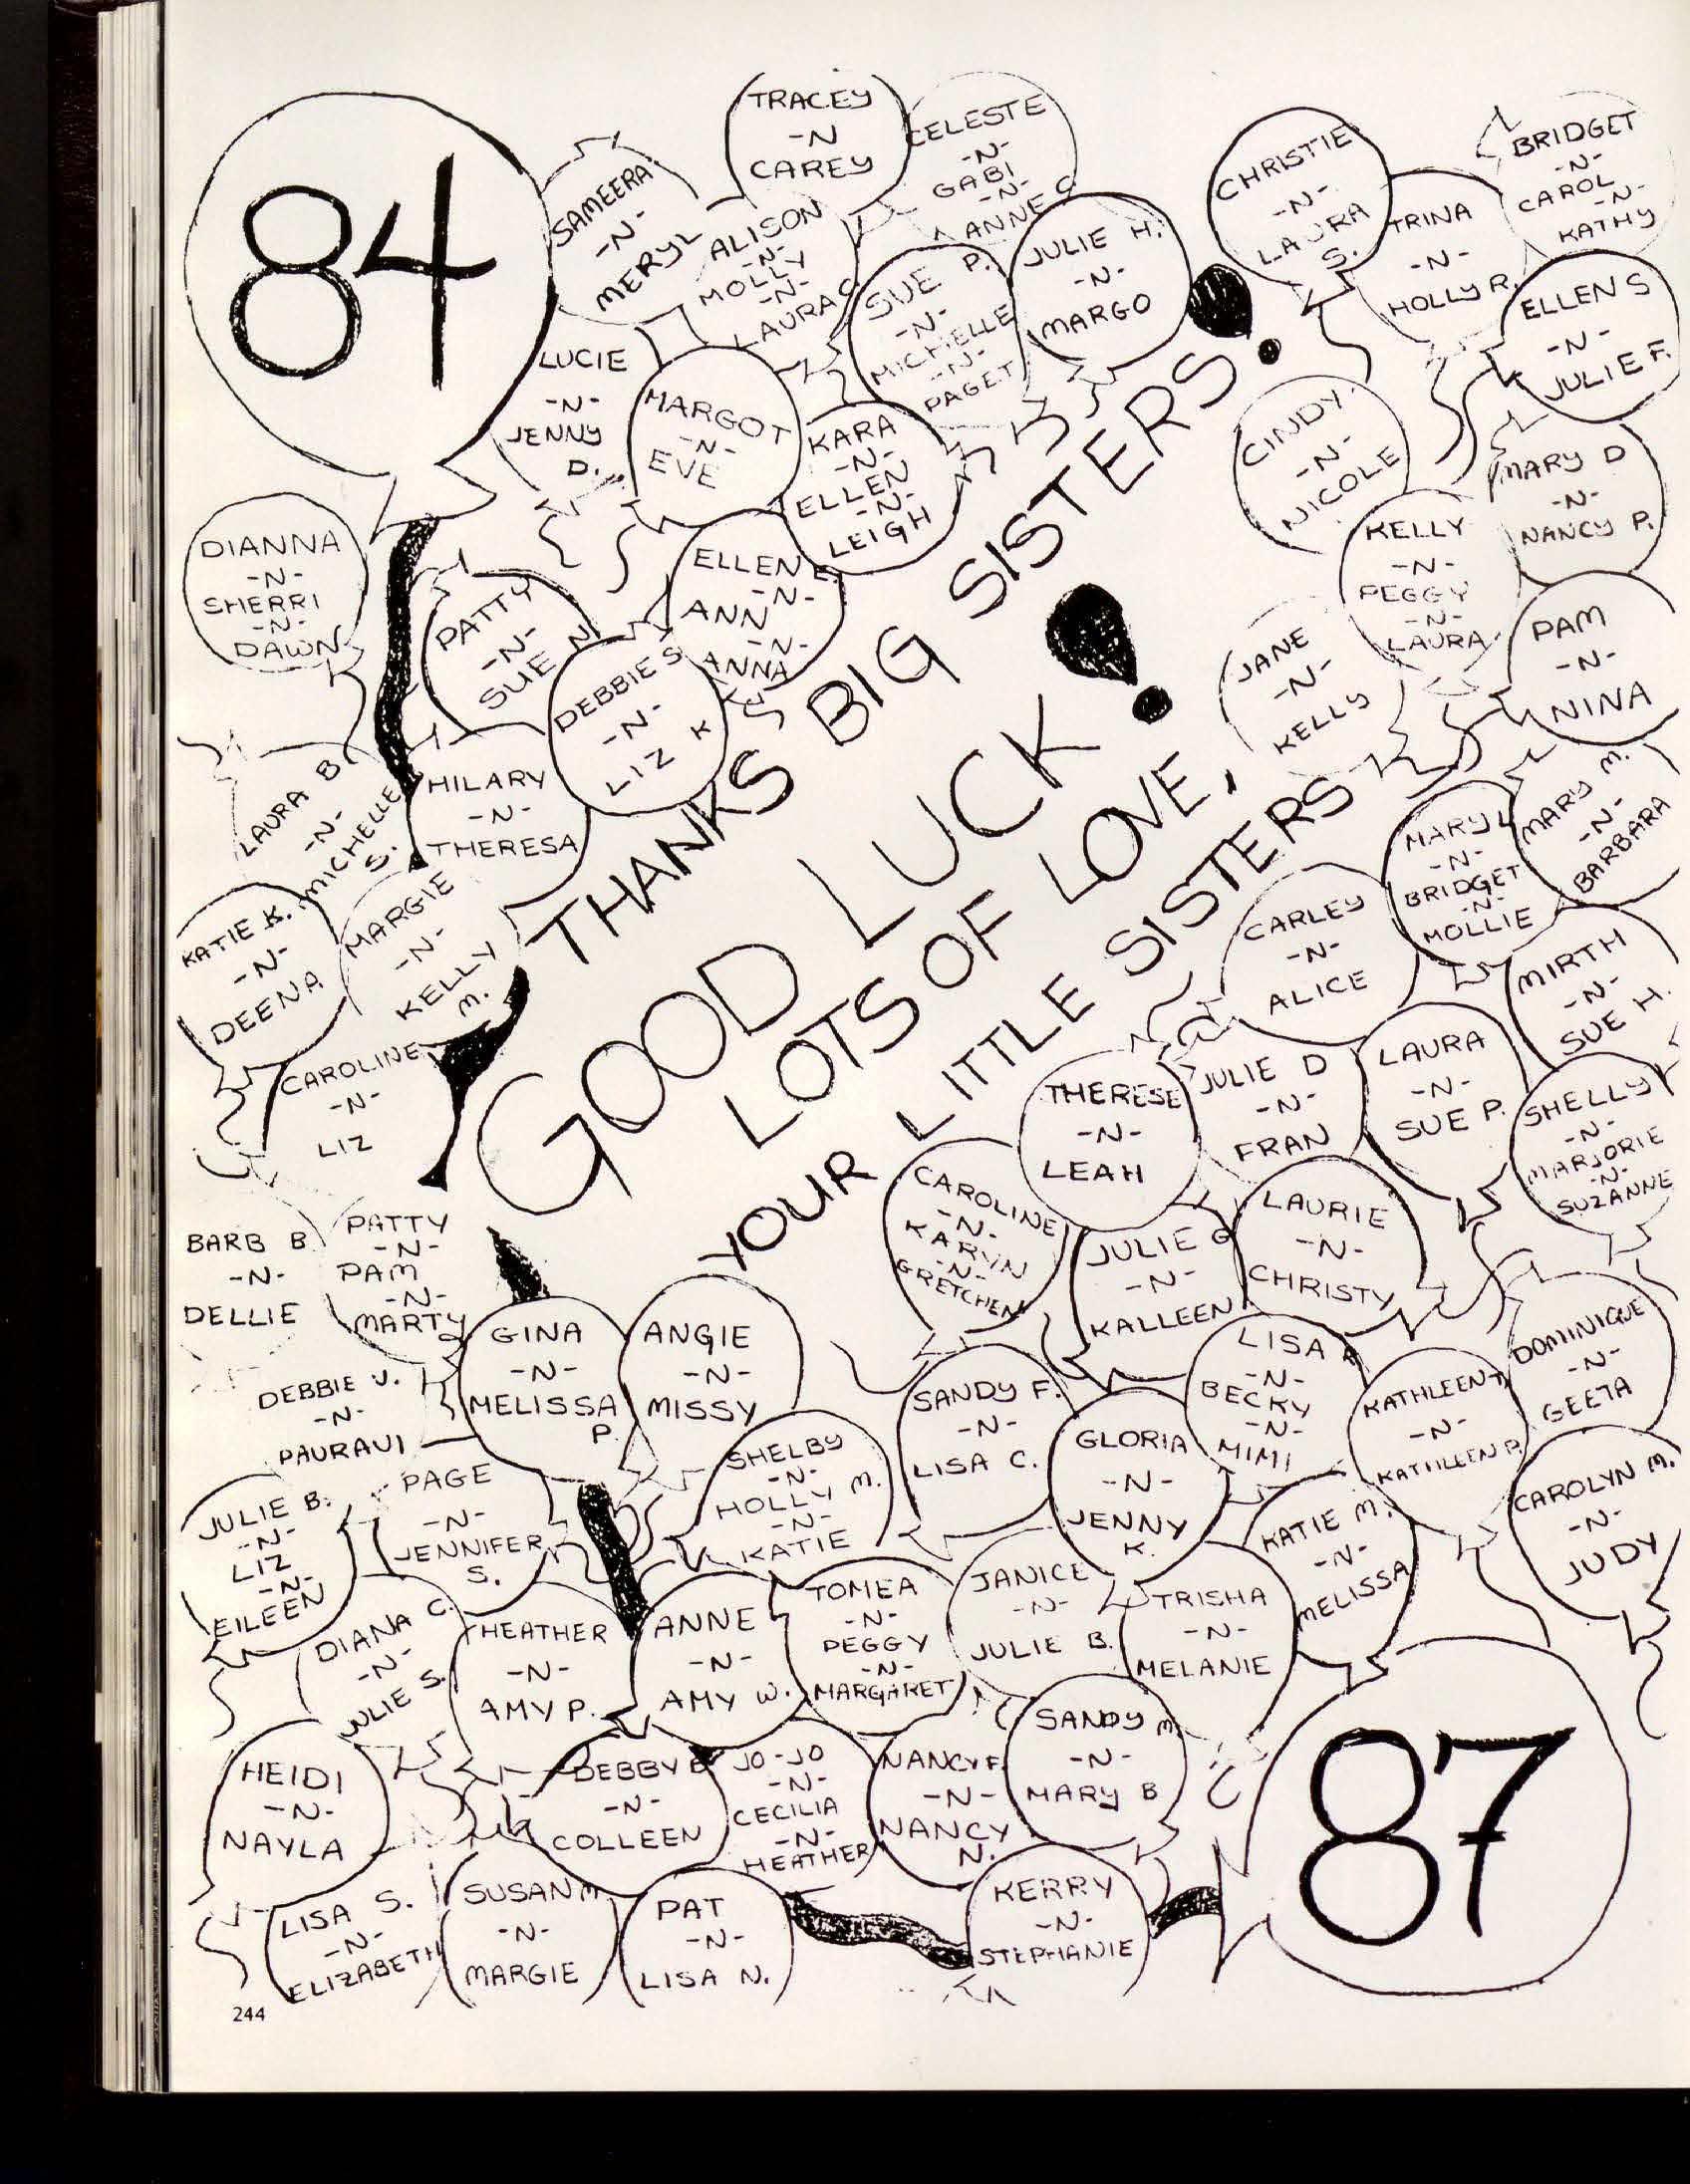 84
SAMEERA
-N-
MERYL
TRACEY
-N
CAREY
CELESTE
-N-
GABI
-N-
ANNE C
CHRISTIE
-N-
LAURA
S.
BRIDGET
-N-
CAROL
-N-
KATHY
ALISON
-N-
MOLLY
-N-
LAURA C
SUE P.
-N-
MICHELLE
-N-
PAGET
JULIE H.
-N-
MARGO
TRINA
-N-
HOLLY R.
ELLEN S
-N-
JULIE F.
LUCIE
-N-
JENNY
D.
MARGOT
-N-
EVE
KARA
-N-
ELLEN
-N-
LEIGH
CINDY
-N-
NICOLE
MARY D
-N-
NANCY P.
DIANNA
-N-
SHERRI
-N-
DAWN
PATTY
-N-
SUE N
ELLEN E.
-N-
ANN
-N-
ANNA
KELLY
-N-
PEGGY
-N-
LAURA
DEBBIE S
-N-
LIZ K
JANE
-N-
KELLY
PAM
-N-
NINA
LAURA B
-N-
MICHELLE
S.
HILARY
-N-
THERESA
THANKS BIG SISTERS!
GOOD LUCK!
LOTS OF LOVE,
YOUR LITTLE SISTERS
MARY L
-N-
BRIDGET
-N-
MOLLIE
MARY M.
-N-
BARBARA
KATIE K.
-N-
DEENA
MARGIE
-N-
KELLY
M.
CARLEY
-N-
ALICE
MIRTH
-N-
SUE H.
CAROLINE
-N-
LIZ
THERESE
-N-
LEAH
JULIE D
-N-
FRAN
LAURA
-N-
SUE P.
SHELLY
-N-
MARJORIE
-N-
SUZANNE
BARB B.
-N-
DELLIE
PATTY
-N-
PAM
-N-
MARTY
CAROLINE
-N-
KARYN
-N-
GRETCHEN
JULIE G
-N-
KALLEEN
LAURIE
-N-
CHRISTY
GINA
-N-
MELISSA
P.
ANGIE
-N-
MISSY
LISA A
-N-
BECKY
-N-
MIMI
DOMINIQUE
-N-
GEETA
DEBBIE J.
-N-
PAURAVI
SANDY F.
-N-
LISA C.
KATHLEEN
-N-
KATHLEEN P.
SHELBY
-N-
HOLLY M.
-N-
KATIE
GLORIA
-N-
JENNY
K.
CAROLYN M.
-N-
JUDY
JULIE B.
-N-
LIZ
-N-
EILEEN
PAGE
-N-
JENNIFER
S.
KATIE M.
-N-
MELISSA
DIANA C.
-N-
JULIE S.
HEATHER
-N-
AMY P.
ANNE
-N-
AMY W.
TOMEA
-N-
PEGGY
-N-
MARGARET
JANICE
-N-
JULIE B.
TRISHA
-N-
MELANIE
HEIDI
-N-
NAYLA
DEBBY B
-N-
COLLEEN
JO-JO
-N-
CECILIA
-N-
HEATHER
NANCY F.
-N-
NANCY
N.
SANDY M.
-N-
MARY B
87
LISA S.
-N-
ELIZABETH
SUSAN M.
-N-
MARGIE
PAT
-N-
LISA N.
KERRY
-N-
STEPHANIE
244